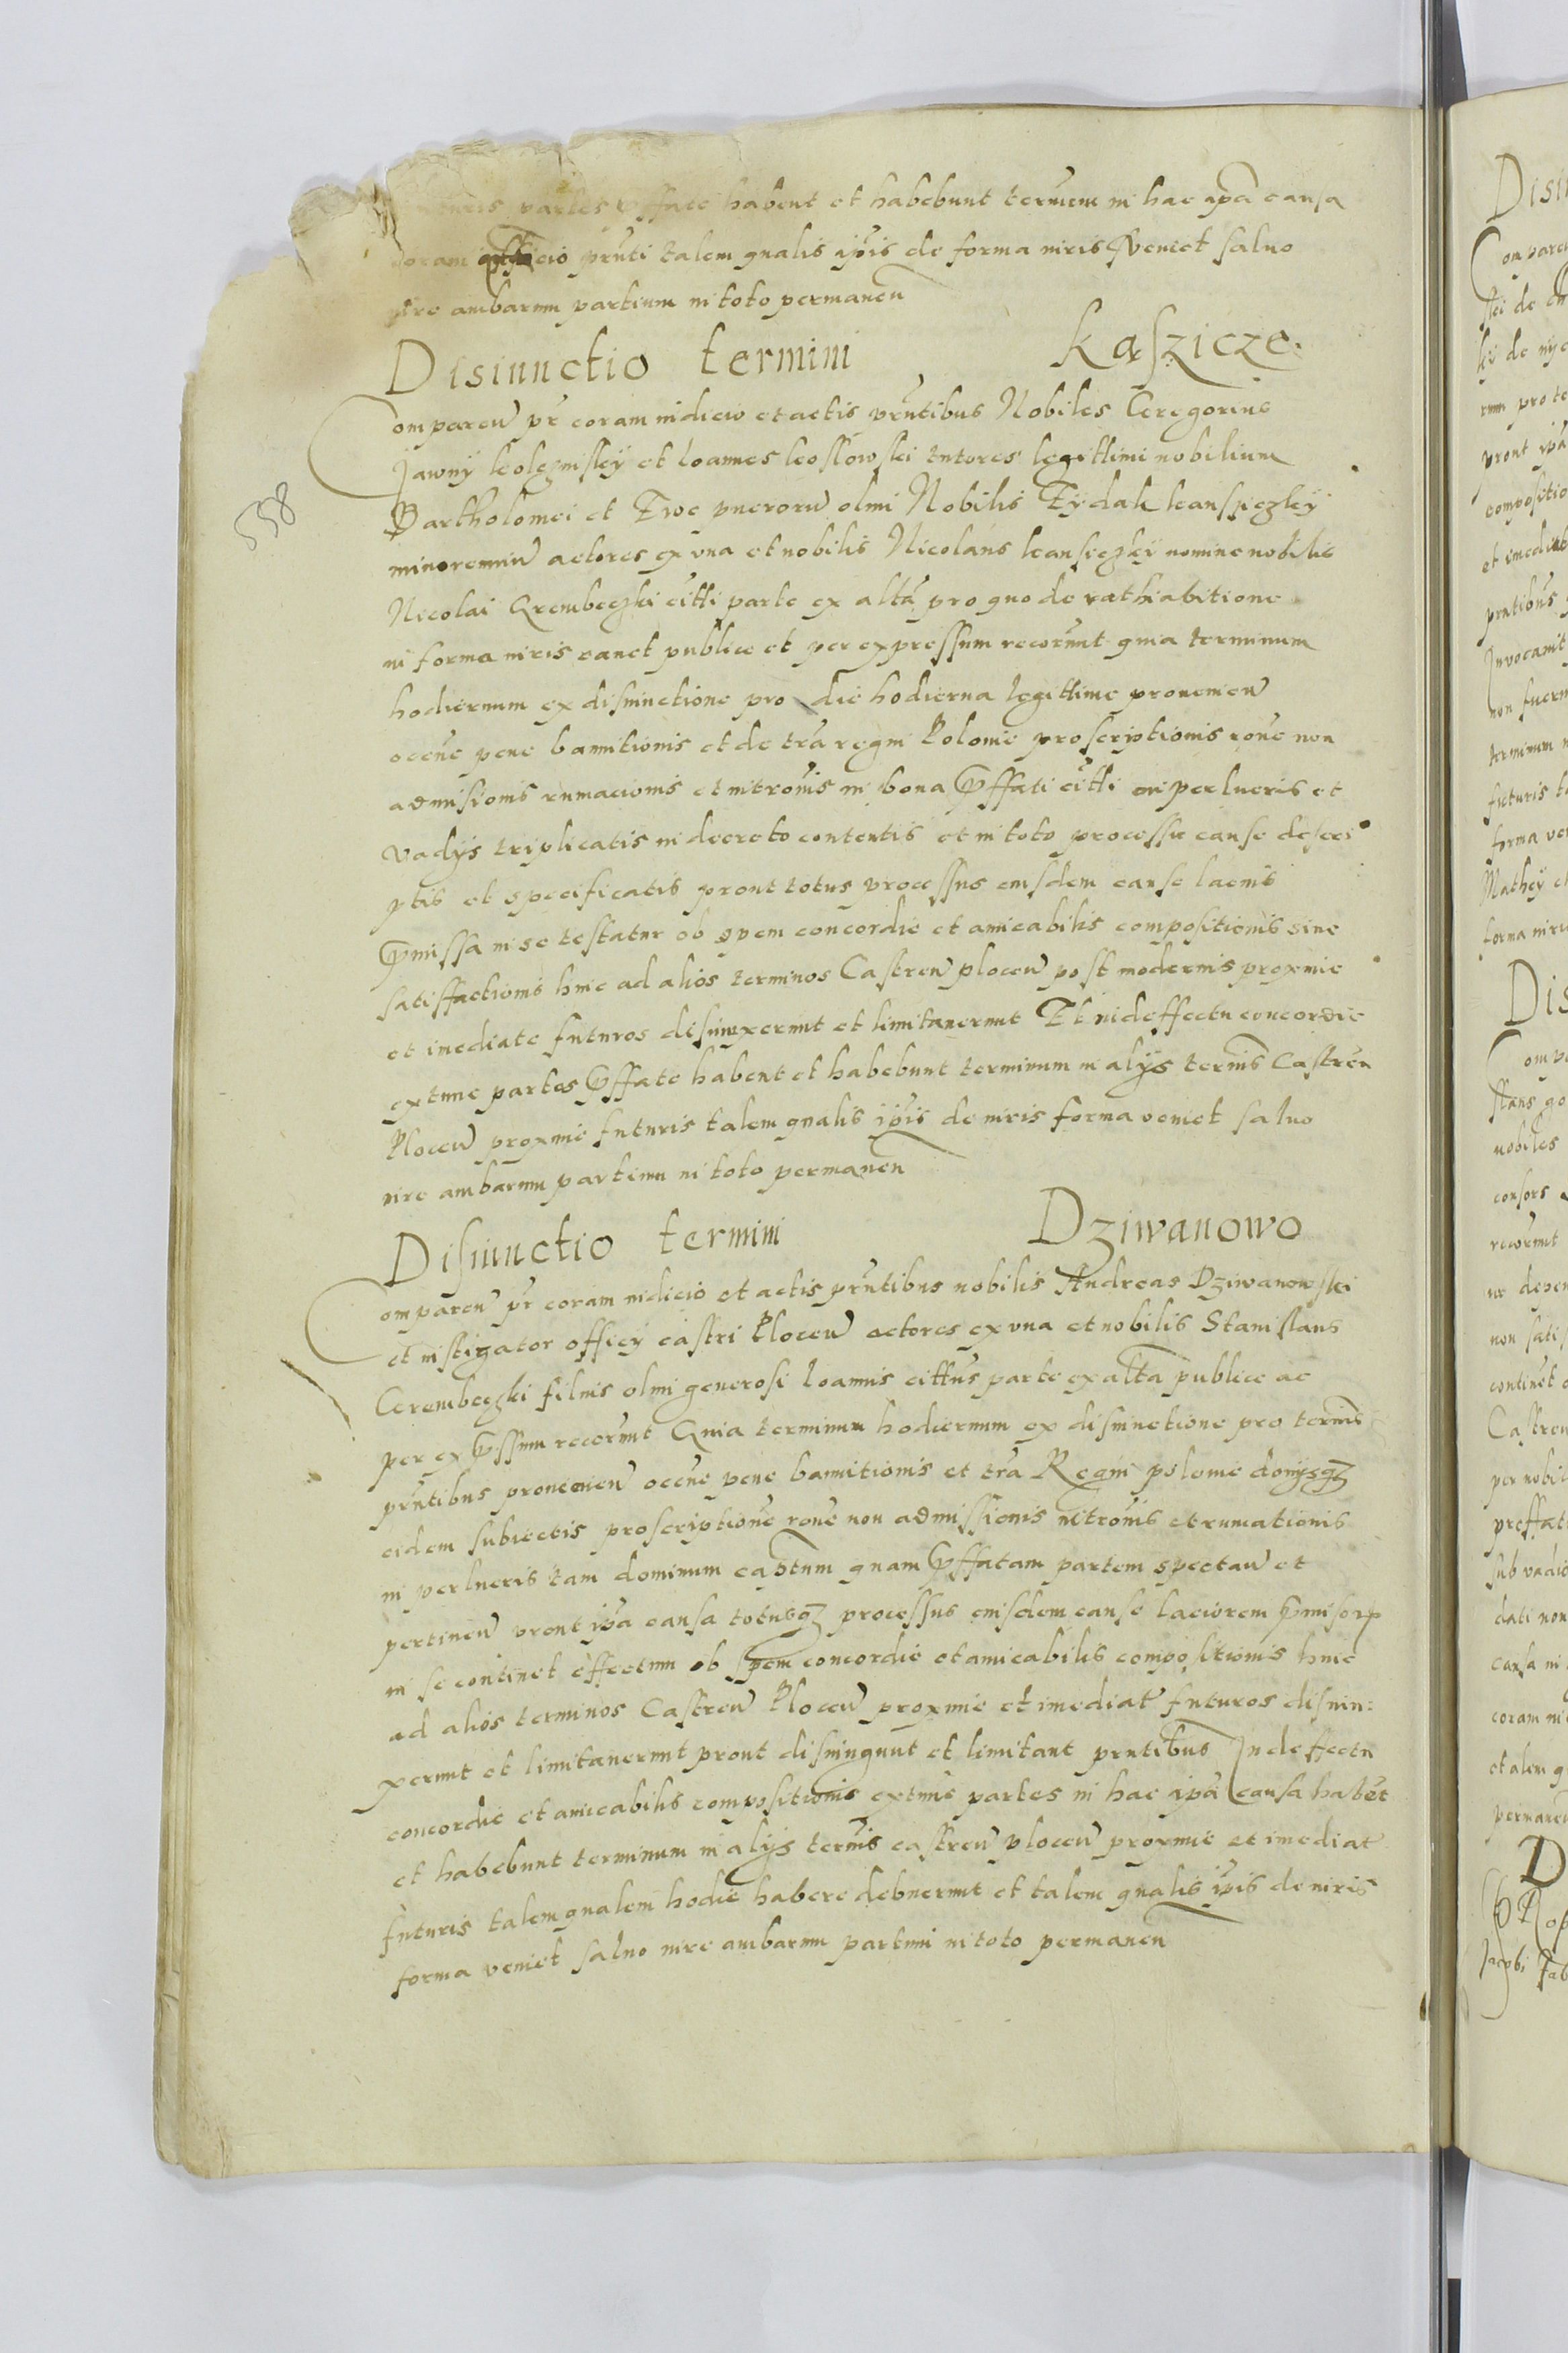 partes pffate habent et habebunt termn in hac ipa causa
coram officio pnti talem qualis ipis de forma iuris veniet saluo
iure ambarum partium in toto permanen
Disiunctio termini Kaszicze
Comparen pr coram iudicio et actis pntibus Nobiles Gregorius
Jawny et Ioannes Koslowski tutores legittimi nobilium
Bartholomei et Ewe puerorū olim Nobilis Fydali Kanssiczky
minorenniū actores ex vna et nobilis Nicolaus Kansiczky nomine nobilis
Nicolai Grembeczki citti parte ex altā pro quo de rathiabitione
in forma iuris cauet publice et per expressum recorunt quia terminum
hodiernum ex disiunctione pro die hodierna legittime prouenien
occne pene bannitionis et de tra regni Polonie proscriptionis rone non
admisionis rumacionis et introis in bona pffati citti in perlucris et
vadys triplicatis in decreto contentis et in toto processu cause descri
ptis et specificatis prout totus processus eiusdem cause lacius
pmissa in se testatur ob spem concordie et amicabilis compositionis sine
satisffactionis hinc ad alios terminos Castren plocen post modernis proxime
et imediate futuros disiunxerunt et limitauerunt Et in deffectu concordie
extunc partes pffate habent et habebunt terminum in alys ternis Castren
Plocen proxime futuris talem qualis ipis de iuris forma veniet saluo
iure ambarum partium in toto permanen
Disiunctio termini Dziwanowo
Comparen pr coram iudicio et actis pntibus nobilis Andreas Dziwanowski
et instigator officy castri Plocen actores ex vna et nobilis Stanislaus
Grembeczki filius olim generosi Ioannis cittus parte ex alta publice ac
per expssum recorunt Quia terminum hodiernum ex disiunctione pro ternis
pntibus prouenien occne pene bannitionis et tra Regni polonie donysqz
eidem subiectis proscriptione rone non admissionis introis et rumationis
in perlucris tam dominum captum quam pffatam partem spectan et
pertinen prout ipa causa totusqz processus eiusdem cause laciorem pmisorp
in se continet effectum ob spem concordie et amicabilis compositionis hinc
ad alios terminos Castren Plocen proxime et imediate futuros disiun:
xerunt et limitauerunt prout disiungunt et limitant pntibus In deffectu
concordie et amicabilis compositionis extunc partes in hac ipa causa habet
et habebunt terminum in alys ternis castren plocen proxime et imediat
futuris talem qualem hodie habere debuerunt et talem qualis ipis de iuris
forma veniet saluo iure ambarum partium in toto permanen
558